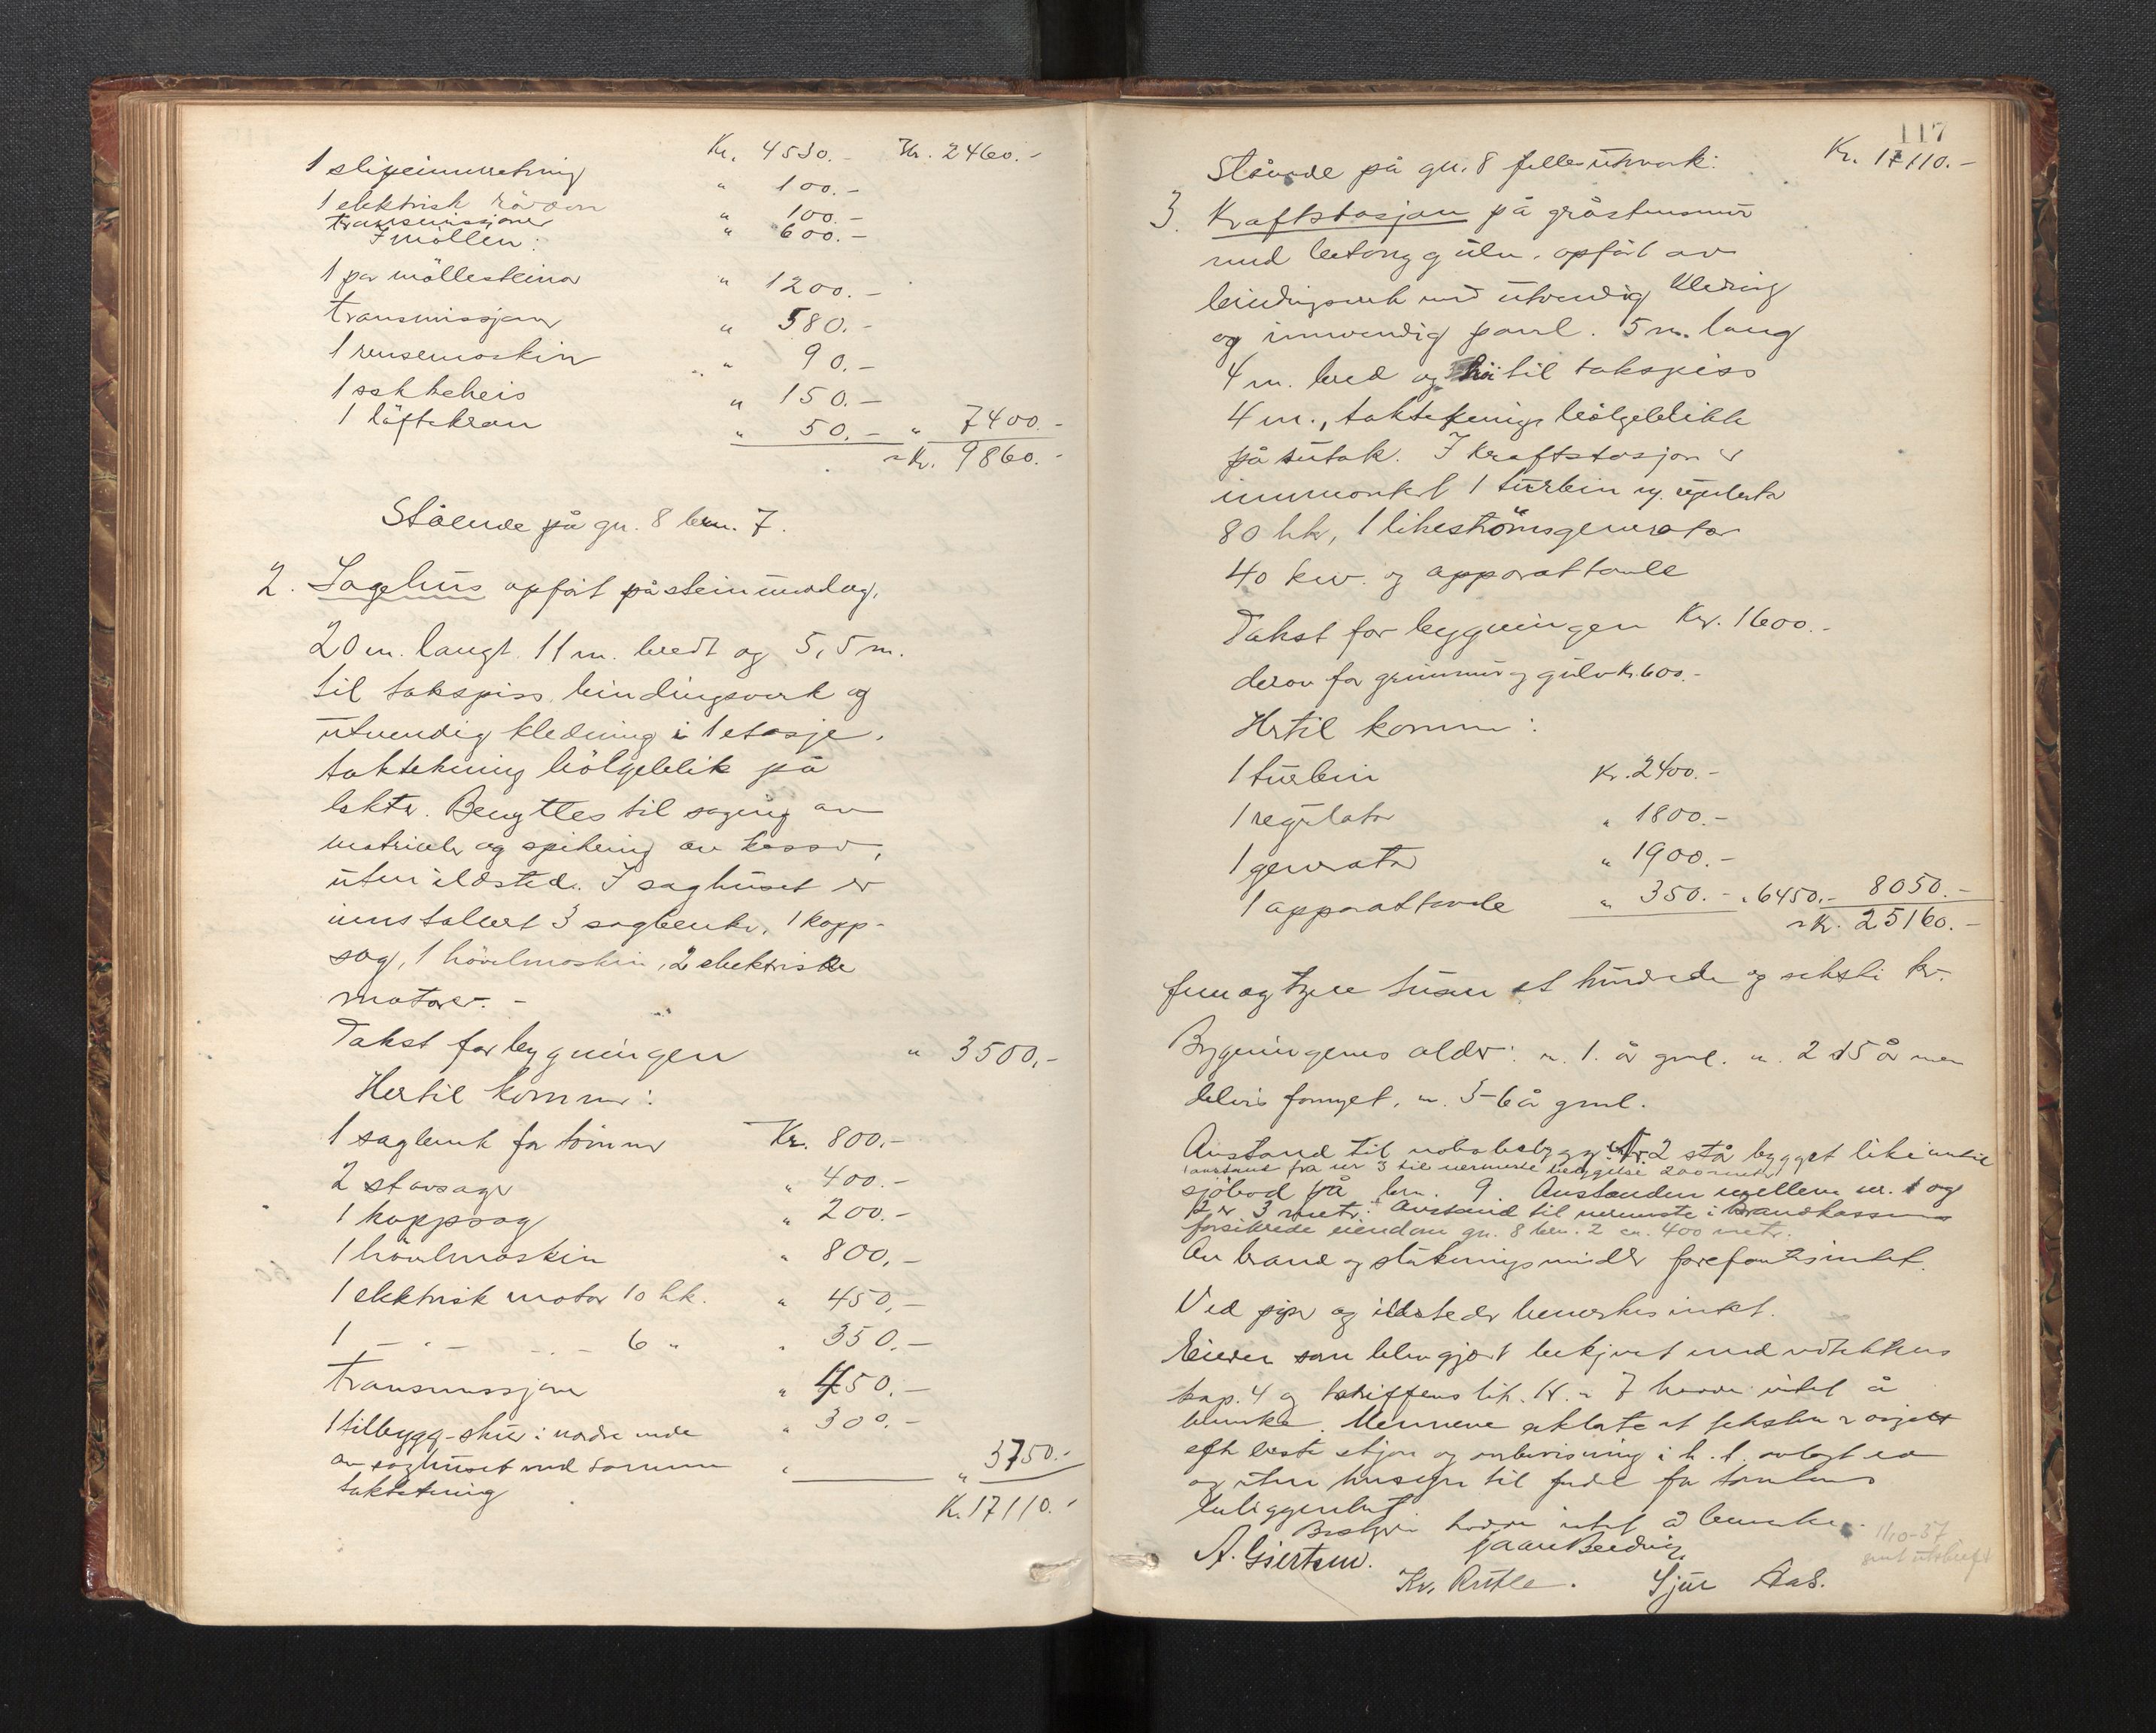 Kr. 4530.- Kr. 2460.-
1 slipeinnretning " 100.-
1 elektrisk " 100.-
transmissjoner " 600.-
I møllen:
1 par möllesteiner " 1200.-
transmissjoner " 580.-
1 rensemaskin " 90.-
1 sekkeheis " 150.-
1 löftekran " 50.- " 7400.-
Kr. 9860.-
Stående på gn. 8 brn. 7.
2. Saghus opfört på steinunderlag,
20 m. langt 11 m. bredt og 5,5 m.
til takspiss, bindingsverk og
utvendig kledning i 1 etasje,
taktekning bölgeblik på
lekter. Benyttes til saging av
materialer og spikring av kasser,
uten ildsted. I saghuset er
innstallert 3 sagbenker, 1 kapp-
sag, 1 hövelmaskin, 2 elektriske
motorer. -
Takst for bygningen " 3500,-
Hertil kommer:
1 sagbenk for tömmer Kr. 800.-
2 stavsager " 400.-
1 kappsag " 200.-
1 hövelmaskin " 800,-
1 elektrisk motor 10 hk. " 450,-
1 - " - - " - 6 " " 350.-
Transmissjoner " 450.-
1 tilbygg-skur i nordre ende " 300.-
av saghuset med samme " " 3750.-
taktekning
Kr. 17110.-
117
Stående på gn. 8 felles utmark: Kr. 17110.-
3. Kraftstasjon på gråstensmur
med betong gulv, opfört av
bindingsverk med utvendig kledning
og innvendig panel. 5 m. lang
4 m. bred og höi til takspiss
4 m., taktekning bölgeblikk
på sutak. I kraftstasjon er
innmontert 1 turbin og regulator
80 hk, 1 likeströmsgenerator
40 kw. og apparattavle
Takst for bygningen Kr. 1600.-
derav for grunnmur og gulv Kr. 600.-
Hertil kommer:
1 turbin Kr. 2400.-
1 regulator " 1800.-
1 generator " 1900.-
1 apparattavle " 350.- " 6450.- 8050.-
Kr. 25160.-
fem og tyve tusen et hundrede og seksti kr.
Bygningenes alder: nr. 1. år gml. nr. 2 15 år men
delvis fornyet, nr. 3 - 6 år gml.
Avstand til nabobebygg.: Nr 2 står bygget like inntil
(avstand fra nr 3 til nermeste bebyggelse 200 meter)
sjöbod på brn. 9. Avstanden mellem nr. 1 og
2 er 3 meter. Avstand til nermeste i Brandkassen
forsikrede eiendom gn. 8 brn. 2 ca. 400 meter.
Av brand og slukningsmidler forefantes intet.
Ved piper og ildsteder bemerkes intet.
Eieren som blev gjort bekjent med
kap. 4 og tariffens lit. N. 7 hadde intet å
bemerke. Mennene erklærte at taksten er avgitt
efter beste skjön og overbevisning i h. t. avlagt ed
og uten hensyn til fordel for tomtens
beliggenhet.
Bestyrer hadde intet å bemerke.
A. Giertsen.
Kr. Rutle. Sjur Aas.
1/10-37
sendt utskrift